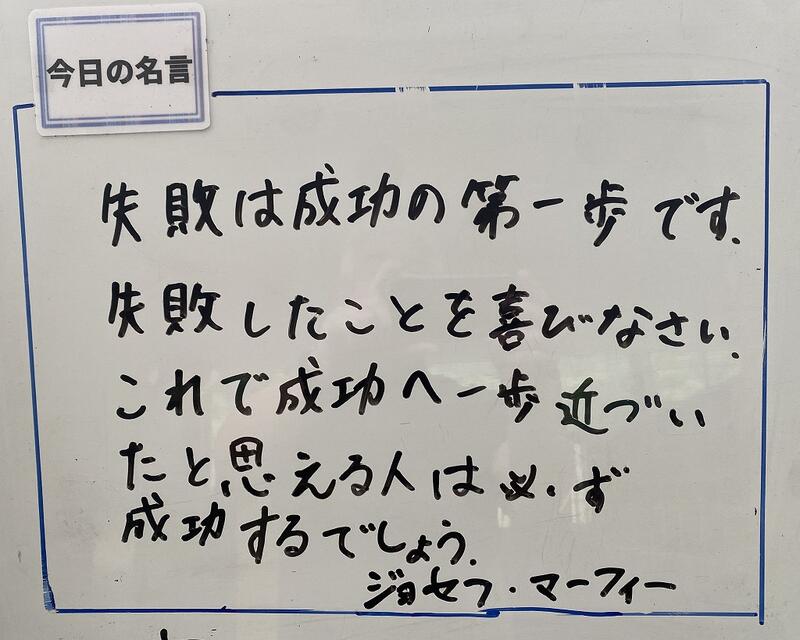 今日の名言
失敗は成功の第一歩です.
失敗したことを喜びなさい.
これで成功へ一歩近づい
たと思える人は必ず
成功するでしょう.
ジョセフ・マーフィー